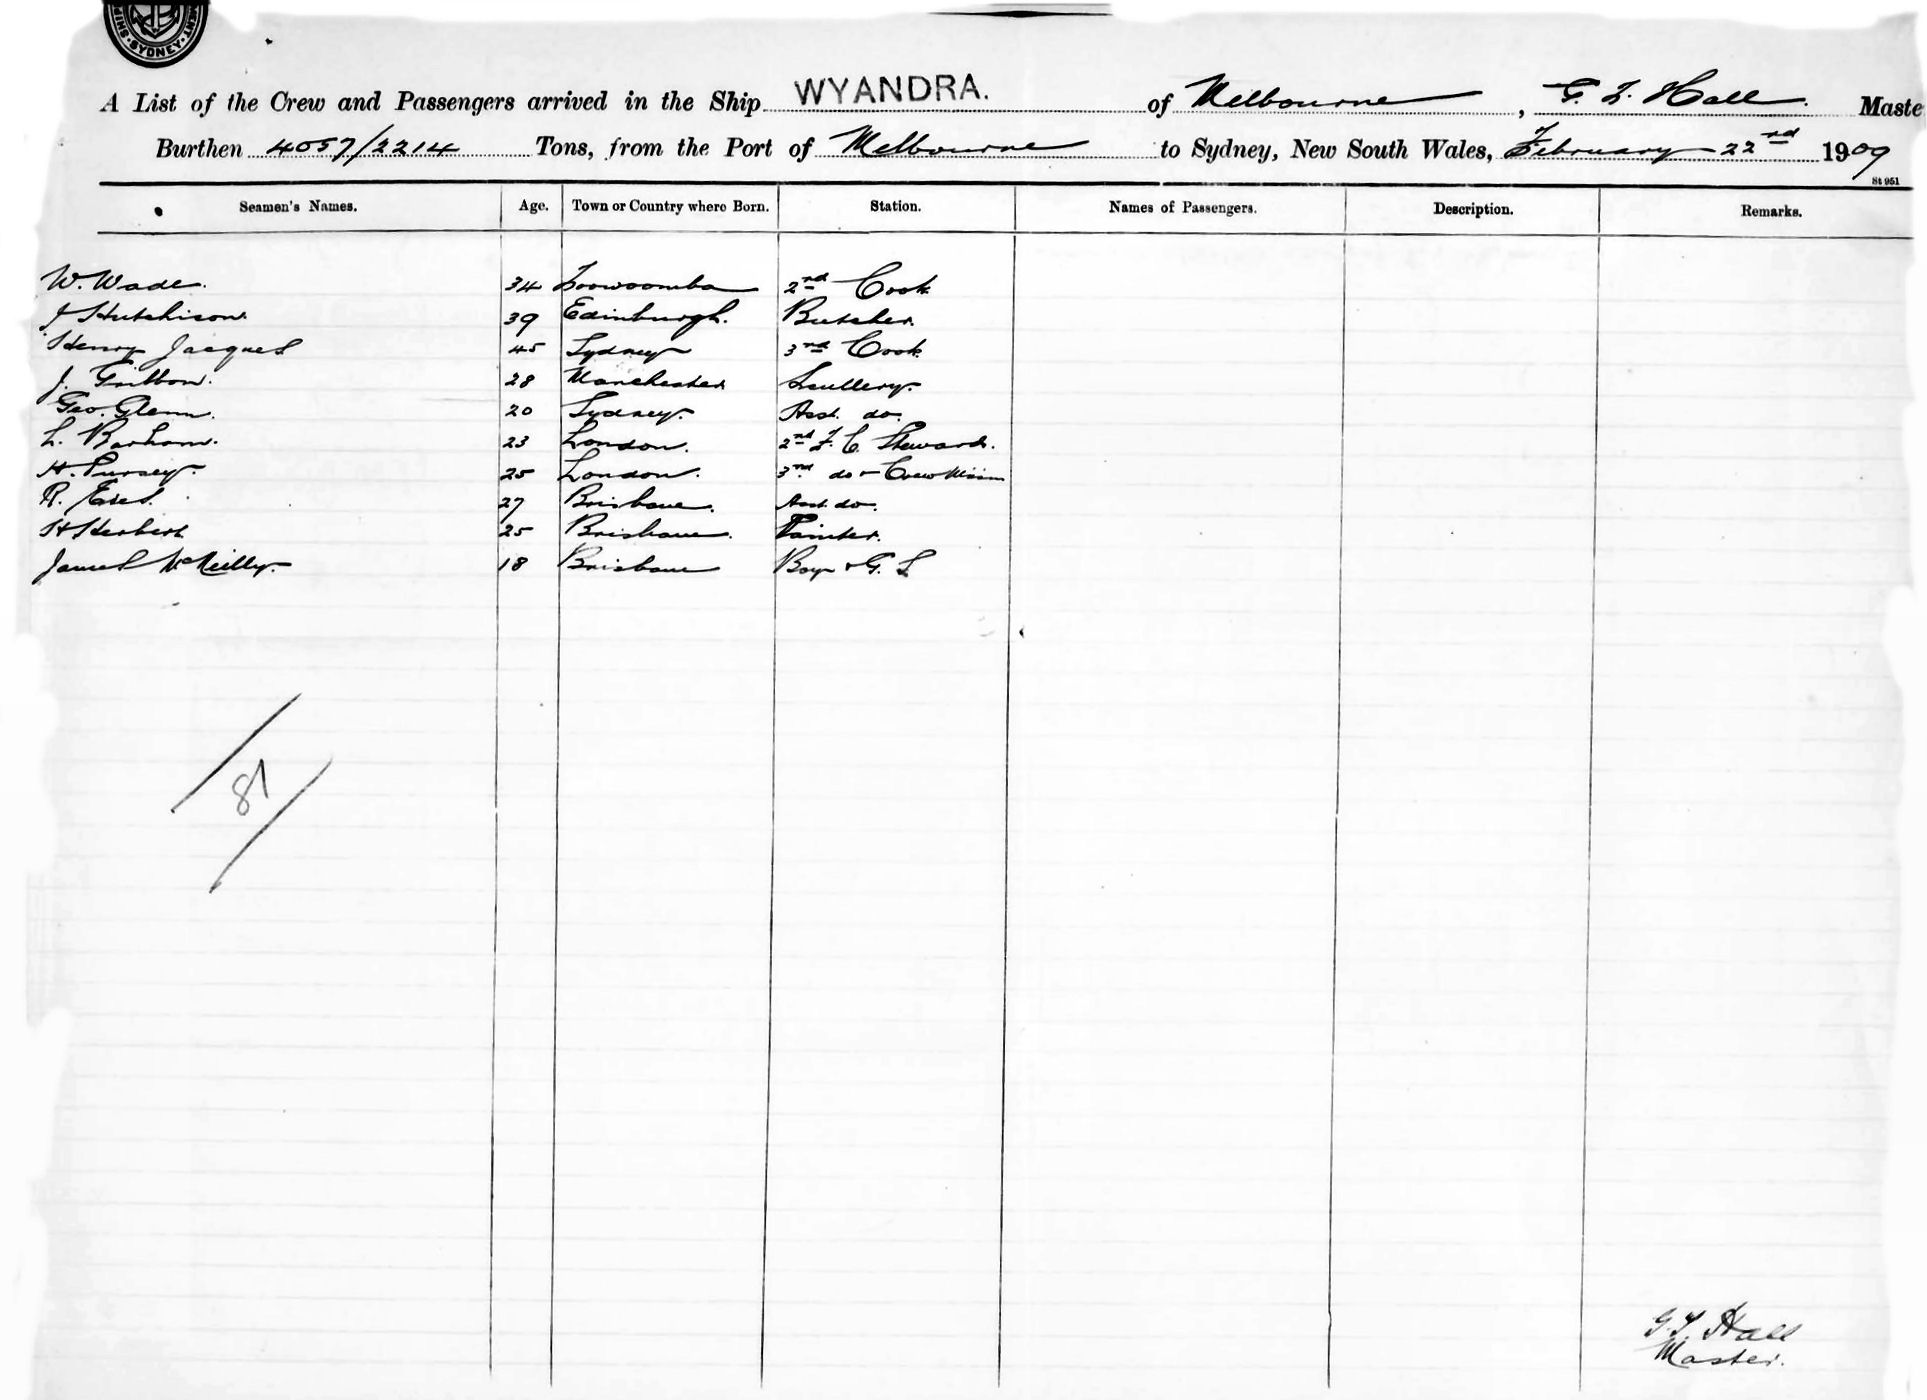 SHIP · SYDNEY · NT
A List of the Crew and Passengers arrived in the Ship WYANDRA. of Melbourne, G. T. Hall. Maste
Burthen 4057/2214 Tons, from the Port of Melbourne to Sydney, New South Wales, February 22nd 1909
St 951
Seamen's Names. Age. Town or Country where Born. Station. Names of Passengers. Description. Remarks.
W. Wade. 34 Toowoomba 2nd Cook
J Hutchison. 39 Edinburgh. Butcher.
Henry Jacques 45 Sydney 3rd Cook
J. Gribbon. 28 Manchester Scullery.
Geo. Glenn. 20 Sydney. Asst. do.
L. Barham. 23 London. 2nd F. C. Steward.
H. Pursey. 25 London. 3rd do + Crew
R. 27 Brisbane. Asst. do.
H Herbert 25 Brisbane. Painter.
James McNeilly. 18 Brisbane Boy + G. S.
81
G. T. Hall
Master.